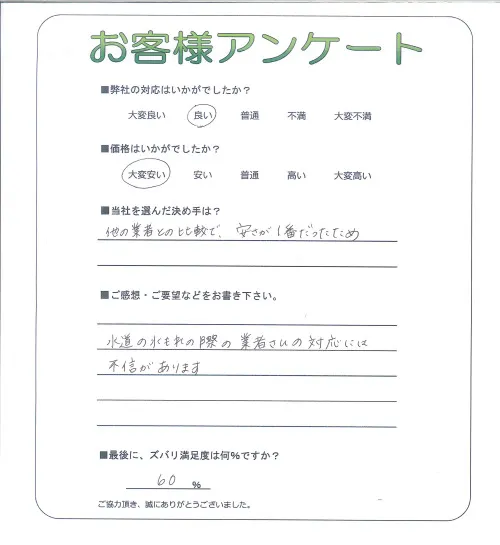 お客様アンケート
■弊社の対応はいかがでしたか?
大変良い 良い 普通 不満 大変不満
■価格はいかがでしたか?
大変安い 安い 普通 高い 大変高い
■当社を選んだ決め手は?
他の業者との比較で、安さが1番だったため
■ご感想・ご要望などをお書き下さい。
水道の水もれの際の業者さんの対応には
不信があります
■最後に、ズバリ満足度は何%ですか?
60 %
ご協力頂き、誠にありがとうございました。